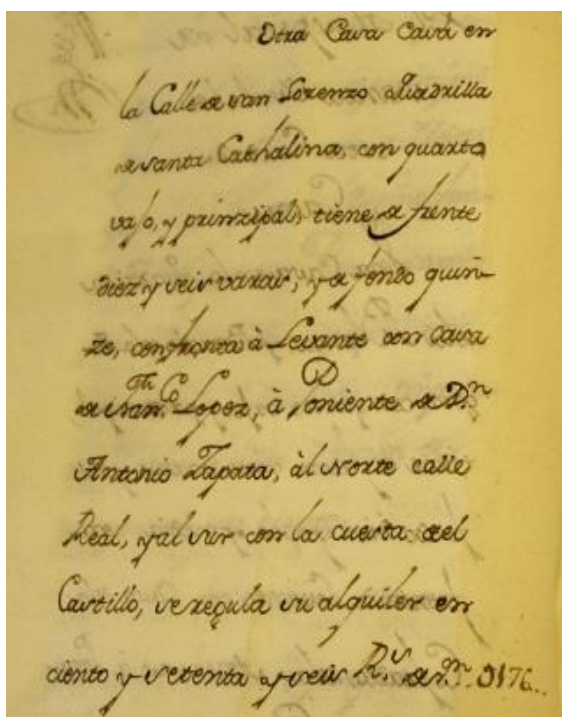 Otra Casa Casa en
la Calle de san Lorenzo quadrilla
de santa Cathalina, con quarto
vajo, y prinzipal, tiene de frente
diez y seis varas, y de fondo quin-
ze, confronta à Levante con casa
de Lopez, à Poniente de Dn
Antonio Zapata, àl Norte calle
Real, y al sur con la cuesta del
Castillo, se regula su alquiler en
ciento y setenta y seis Rs de vn. 0176..